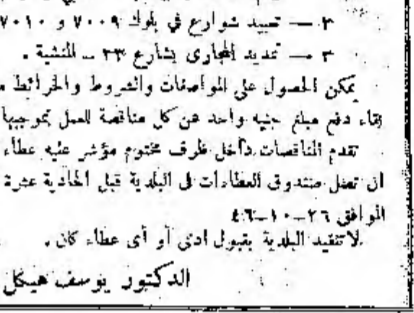 ٢ — تعبيد شوارع في بلوك ٧٠٠٩ و ٧٠١٠
٣ — تمديد المجارى بشارع ٢٣ — المنشية .
يمكن الحصول على المواصفات والشروط والخرائط
لقاء دفع مبلغ جنيه واحد عن كل مناقصة للعمل بموجبها
تقدم المناقصات داخل ظرف مختوم مؤشر عليه عطاء
ان تصل صندوق العطاءات في البلدية قبل الحادية عشرة
الموافق ٢٦–١٠–٤٦
لا تتقيد البلدية بقبول ادنى أو أى عطاء كان .
الدكتور يوسف هيكل